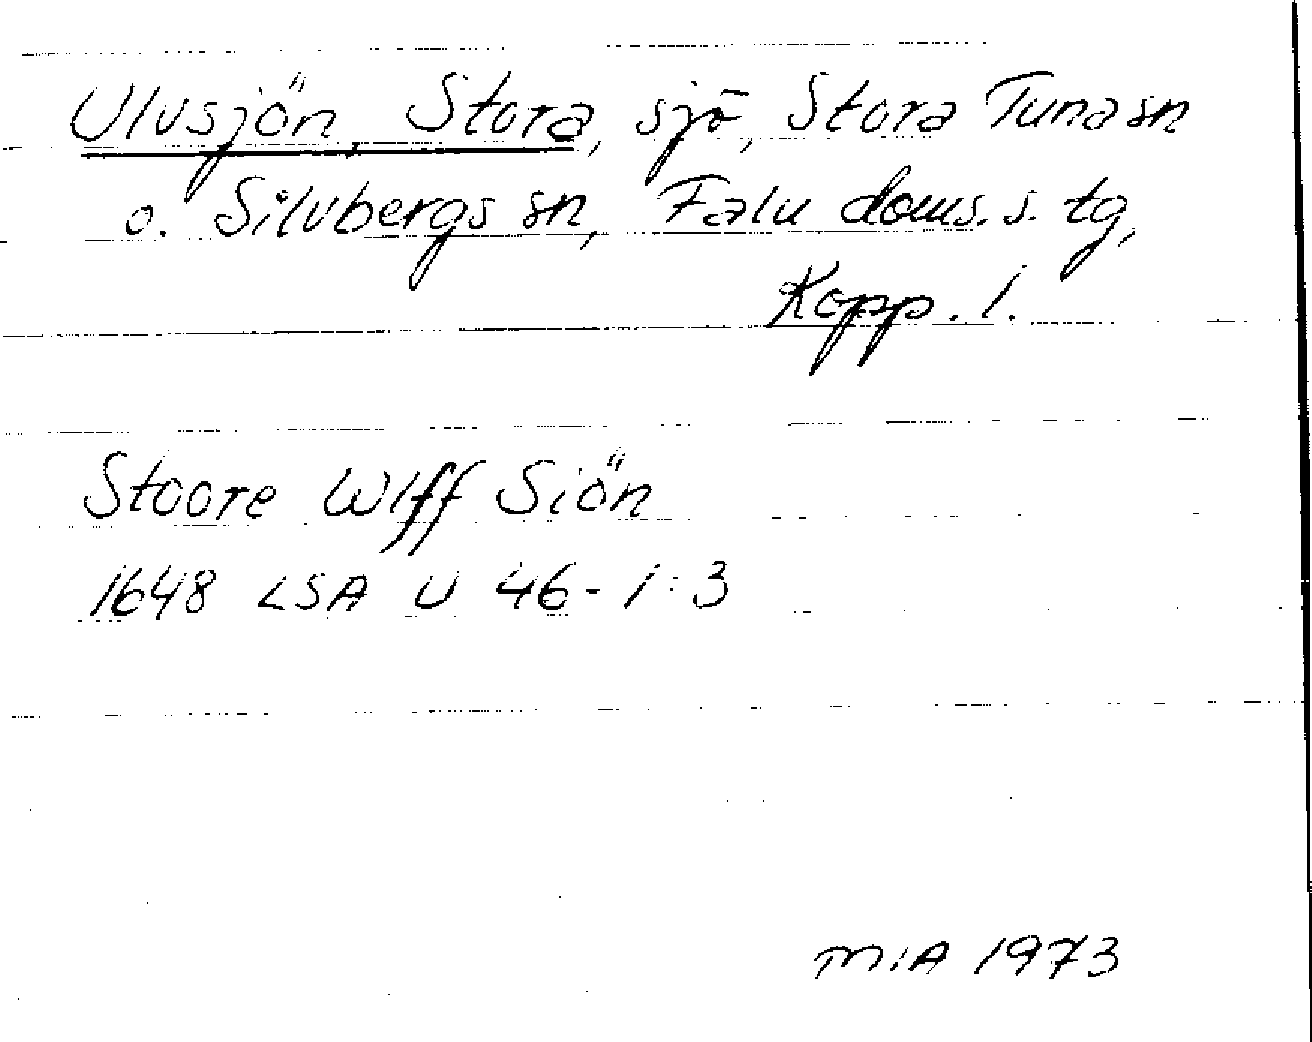 Ulvsjön, Stora, sjö, Stora Tuna sn
o. Silvbergs sn, Falu doms. s. tg,
Kopp. l.
Stoore Wlff Siön
1648 LSA U 46-1:3
MIA 1973